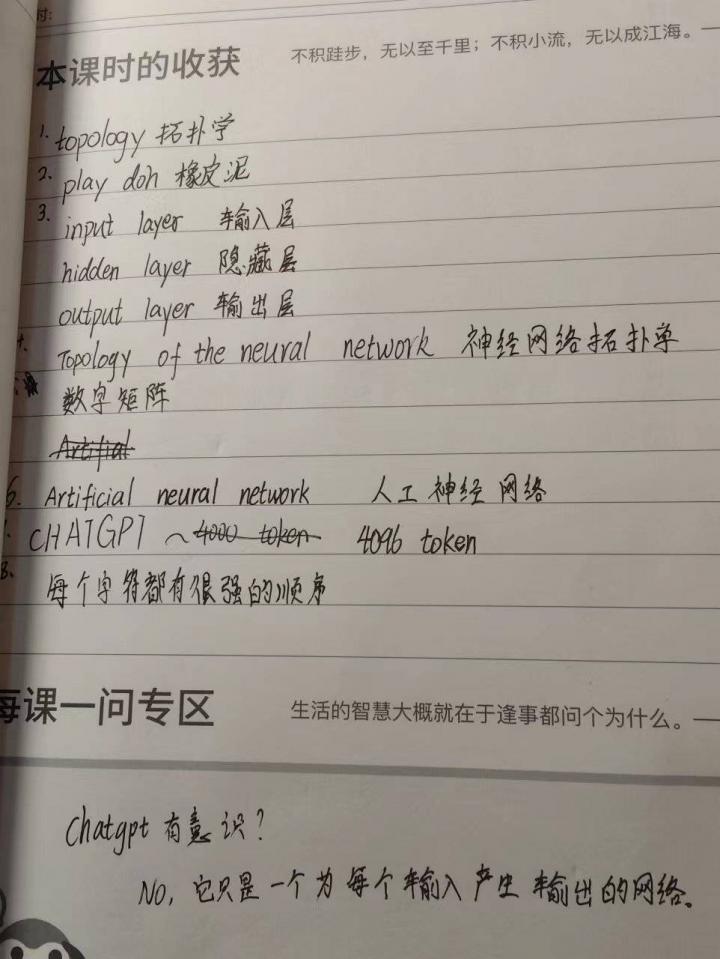 时:
本课时的收获
不积跬步，无以至千里；不积小流，无以成江海。—
1. topology 拓扑学
2. play doh 橡皮泥
3. input layer 输入层
hidden layer 隐藏层
output layer 输出层
Topology of the neural network 神经网络拓扑学
数字矩阵
Artifial
6. Artificial neural network 人工神经网络
CHATGPT ~4000 token 4096 token
8. 每个字符都有很强的顺序
每课一问专区
生活的智慧大概就在于逢事都问个为什么。—
Chatgpt 有意识?
No, 它只是一个为每个输入产生输出的网络。